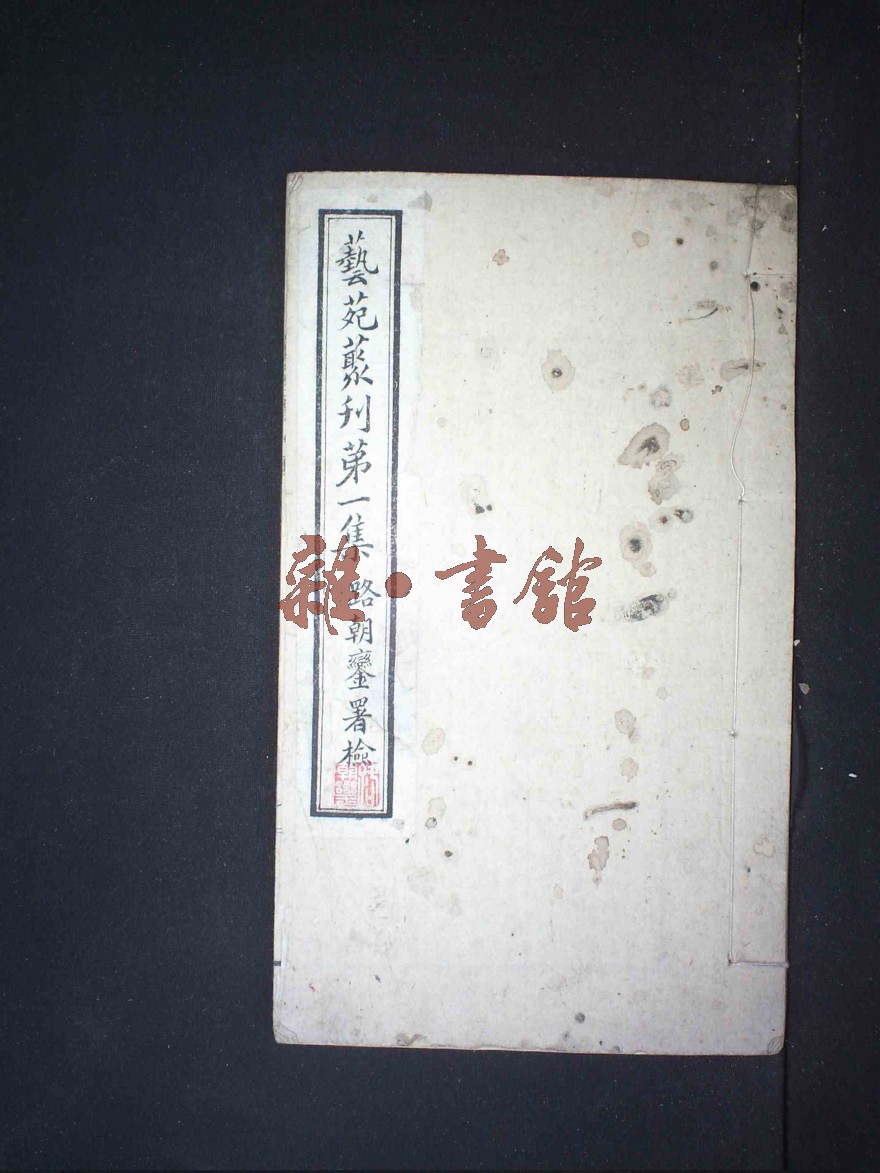 藝苑叢刊第一集 路朝鑾署檢
雜·書館